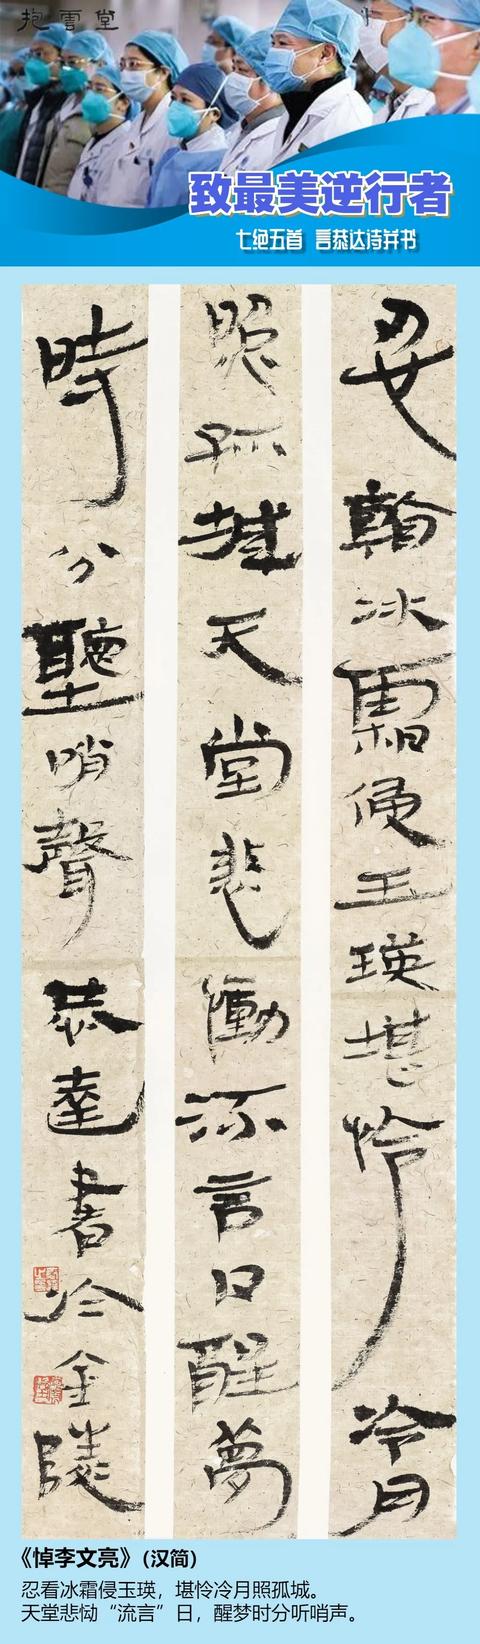 抱雲堂
致最美逆行者
七绝五首 言恭达诗并书
忍看冰霜侵玉瑛堪怜冷月
照孤城天堂悲慟流言日醒夢
時分聽哨聲恭達書於金陵
《悼李文亮》(汉简)
忍看冰霜侵玉瑛，堪怜冷月照孤城。
天堂悲恸“流言”日，醒梦时分听哨声。